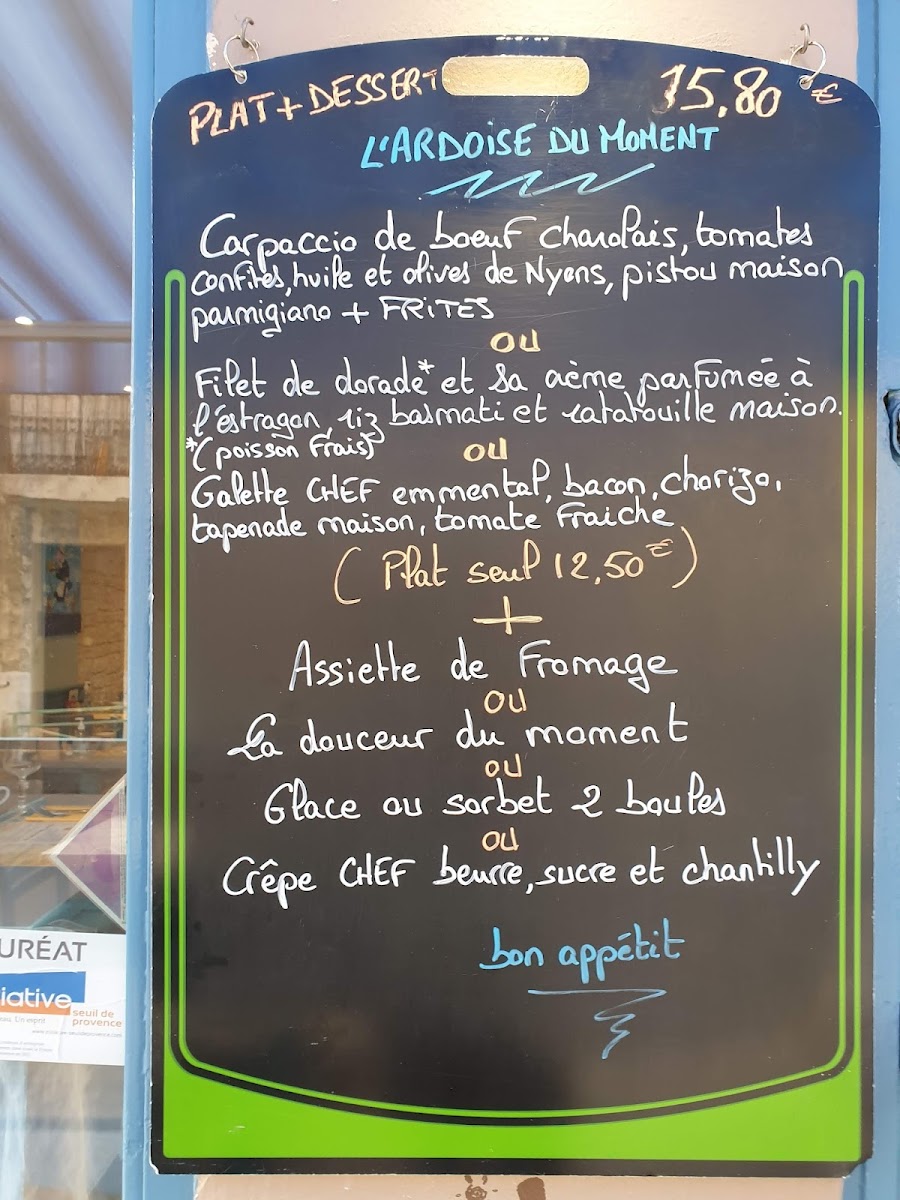 PLAT + DESSERT 15,80 €
L'ARDOISE DU MOMENT
Carpaccio de boeuf charolais, tomates
confites, huile et olives de Nyons, pistou maison
parmigiano + FRITES
OU
Filet de dorade* et sa crème parfumée à
l'éstragon, riz basmati et ratatouille maison.
*(poisson Frais)
OU
Galette CHEF emmental, bacon, chorizo,
tapenade maison, tomate Fraiche
(Plat seul 12,50€)
+
Assiette de Fromage
OU
La douceur du moment
OU
Glace ou sorbet 2 boules
OU
Crêpe CHEF beurre, sucre et chantilly
bon appétit
URÉAT
iative
seuil de
provence